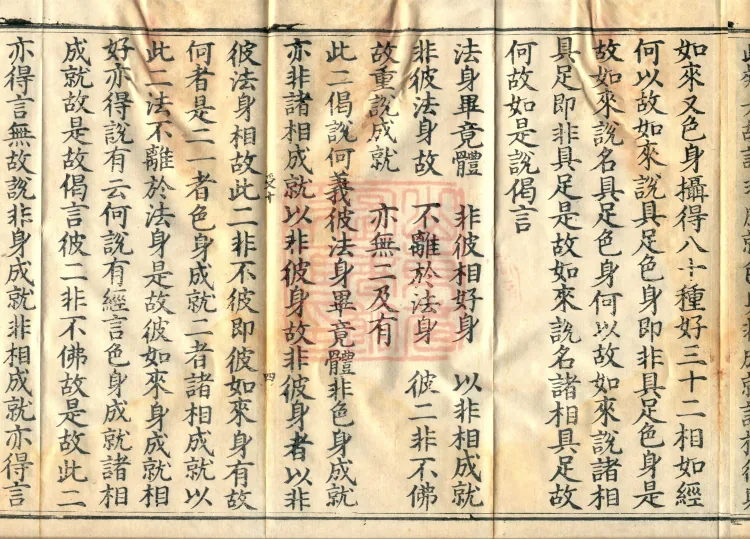 如來又色身攝得八十種好三十二相如經
何以故如來說具足色身即非具足色身是
故如來說名具足色身何以故如來說諸相
具足即非具足是故如來說名諸相具足故
何故如是說偈言
法身畢竟體 非彼相好身 以非相成就
非彼法身故 不離於法身 彼二非不佛
故重說成就 亦無二及有
此二偈說何義彼法身畢竟體非色身成就
亦非諸相成就以非彼身故非彼身者以非
彼法身相故此二非不彼即彼如來身有故
何者是二一者色身成就二者諸相成就以
此二法不離於法身是故彼如來身成就相
好亦得說有云何說有經言色身成就諸相
成就故是故偈言彼二非不佛故是故此二
亦得言無故說非身成就非相成就亦得言